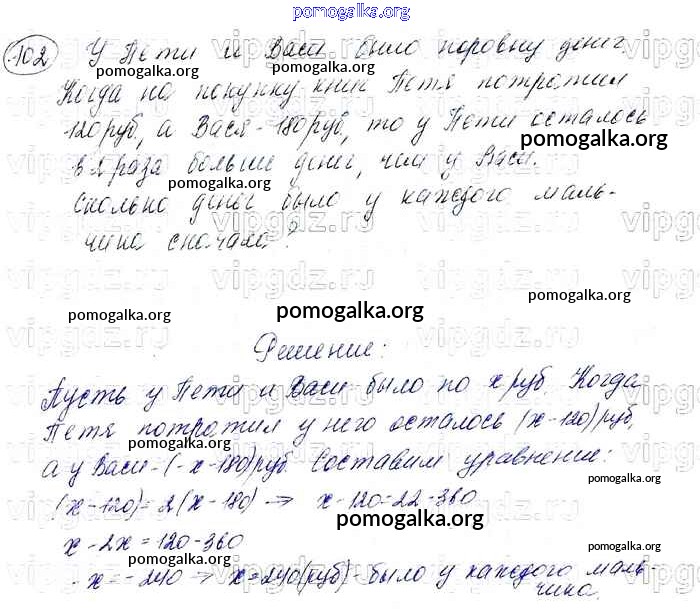 pomogalka.org
102 У Пети и Васи было поровну денег.
Когда на покупку книг Петя потратил
120 руб, а Вася - 180 руб, то у Пети осталось
в раза больше денег, чем у Васи.
Сколько денег было у каждого маль-
чика сначала?
Решение:
Пусть у Пети и Васи было по x руб. Когда
Петя потратил у него осталось (x-120) руб,
а у Васи - (-x-180) руб. Составим уравнение:
(x-120)=2(x-180) → x-120=22-360
x-2x=120-360
-x=-240 → x=240 (руб) - было у каждого маль
чика.
pomogalka.org
pomogalka.org
pomogalka.org
pomogalka.org
pomogalka.org
pomogalka.org
pomogalka.org
pomogalka.org
pomogalka.org
pomogalka.org
pomogalka.org
pomogalka.org